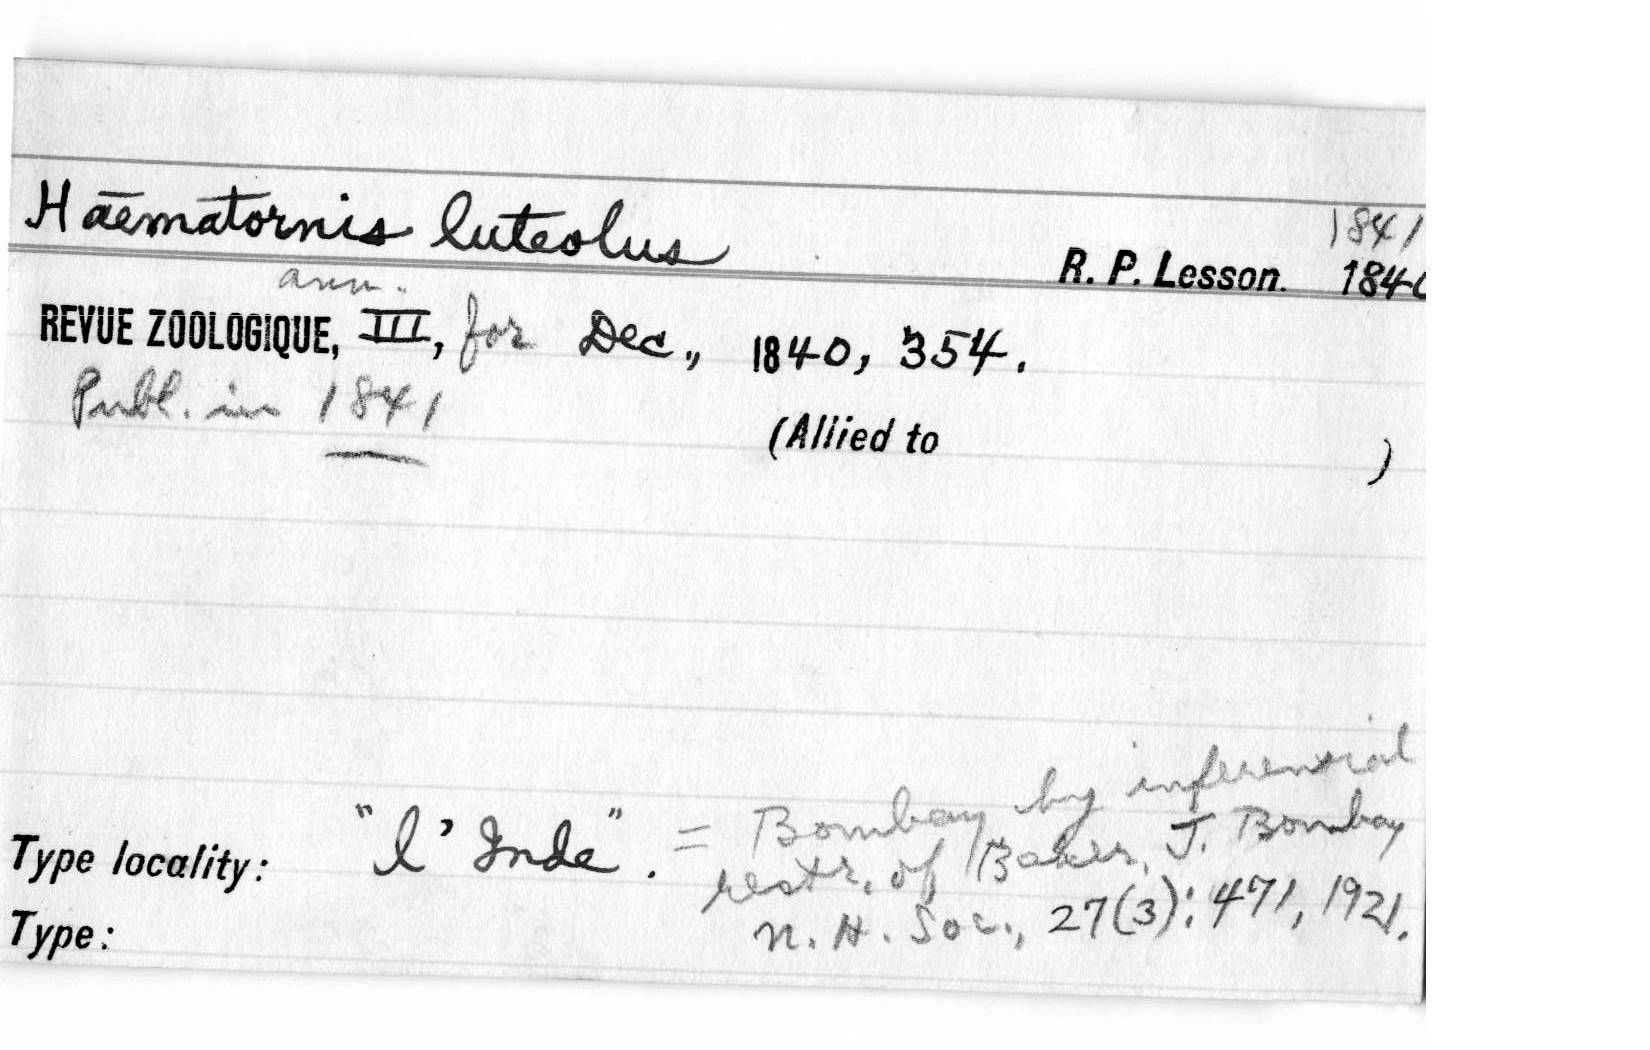 Haematornis luteolus
1841
R. P. Lesson. 1840
ann.
REVUE ZOOLOGIQUE, III, for Dec., 1840, 354.
Publ. in 1841
(Allied to )
Type locality: "l'Inde". = Bombay by inferential
restr. of Baker, J. Bombay
N. H. Soc., 27(3): 471, 1921.
Type: